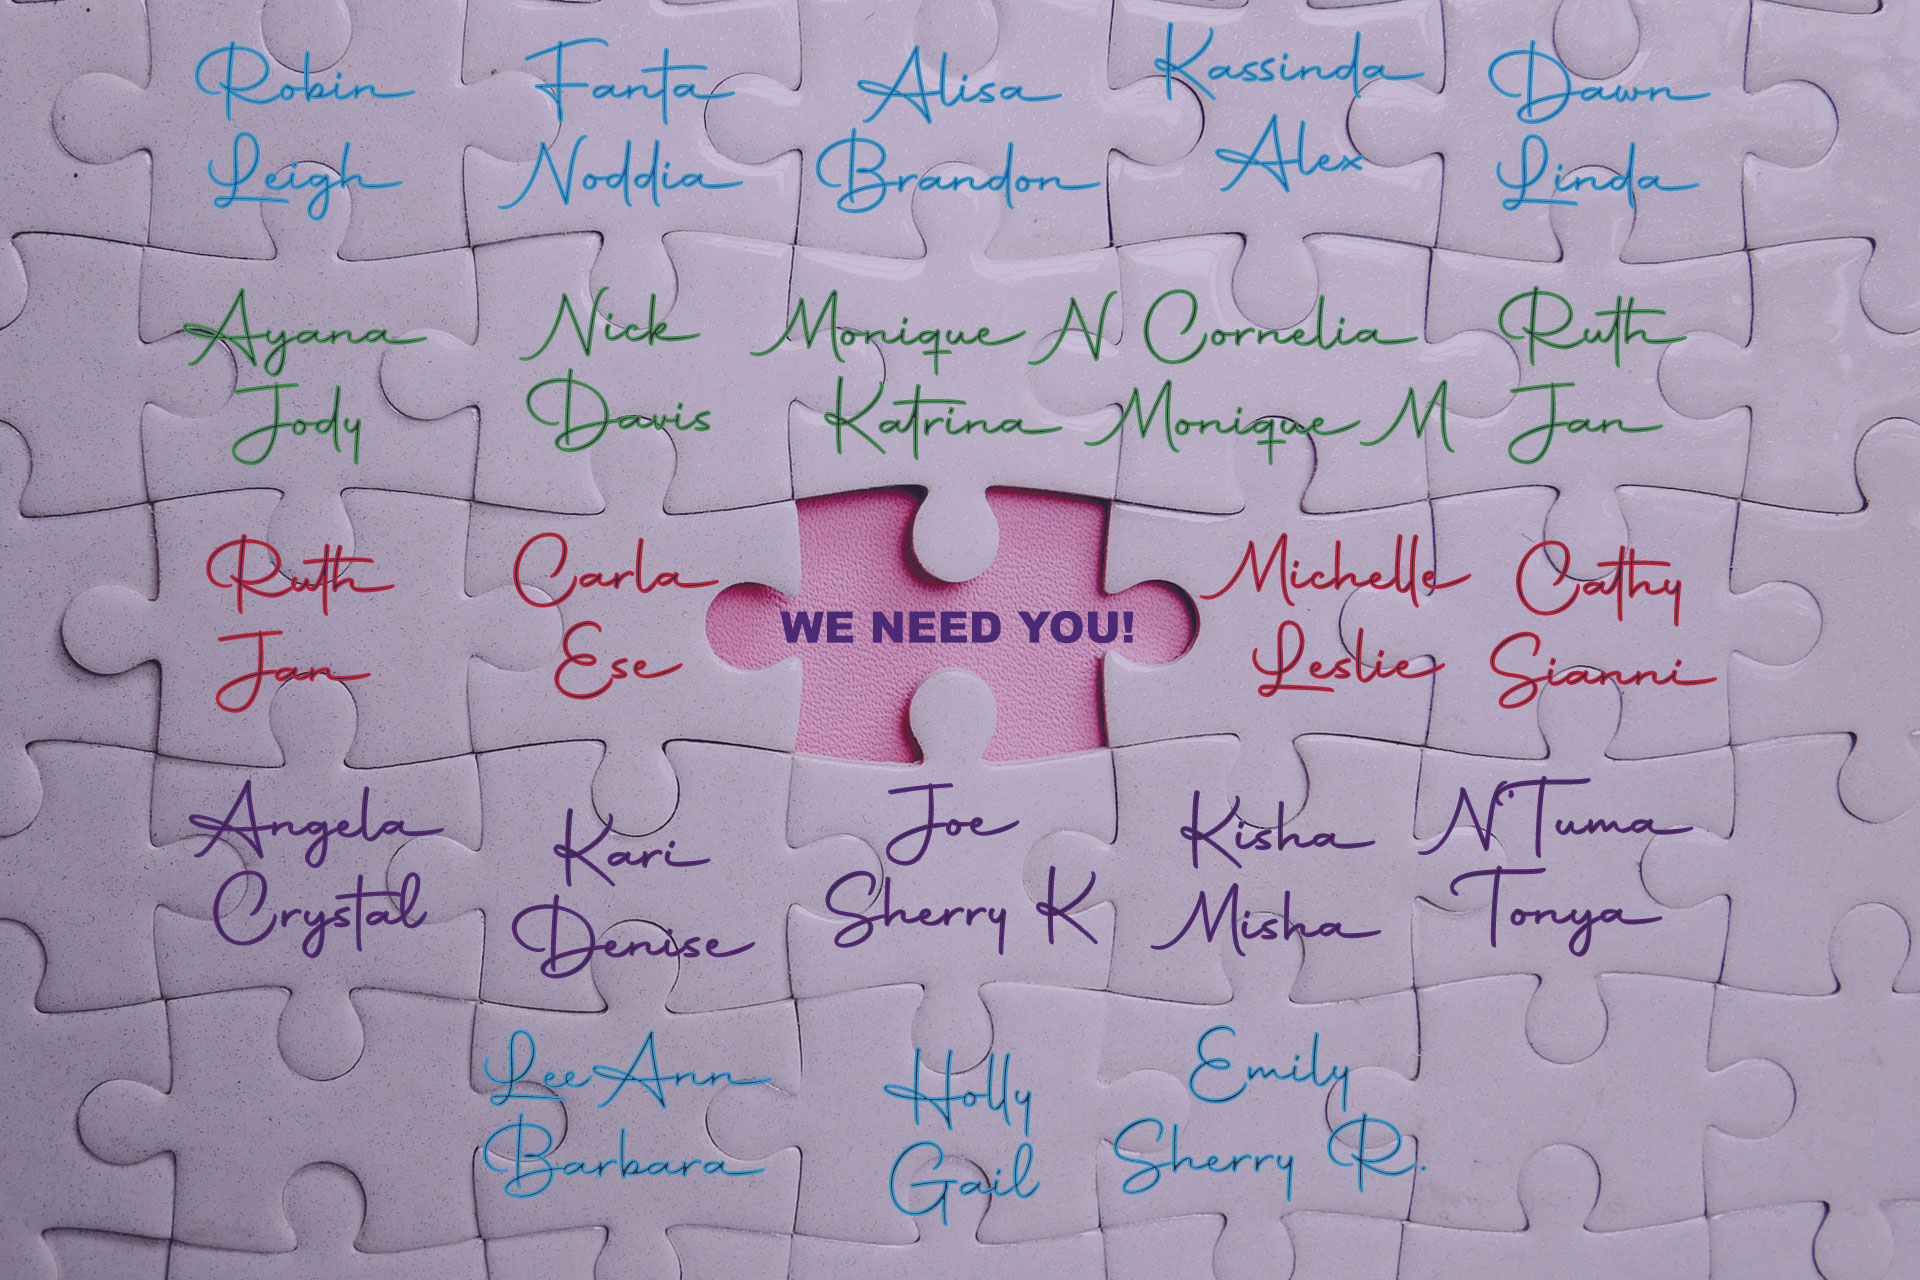 Robin Fanta Alisa Kassinda Dawn
Leigh Noddia Brandon Alex Linda
Ayana Nick Monique N Cornelia Ruth
Jody Davis Katrina Monique M Jan
Ruth Carla Michelle Cathy
WE NEED YOU!
Jan Ese Leslie Sianni
Angela Kari Joe Kisha N'Tuma
Crystal Denise Sherry K Misha Tonya
LeeAnn Holly Emily
Barbara Gail Sherry R.